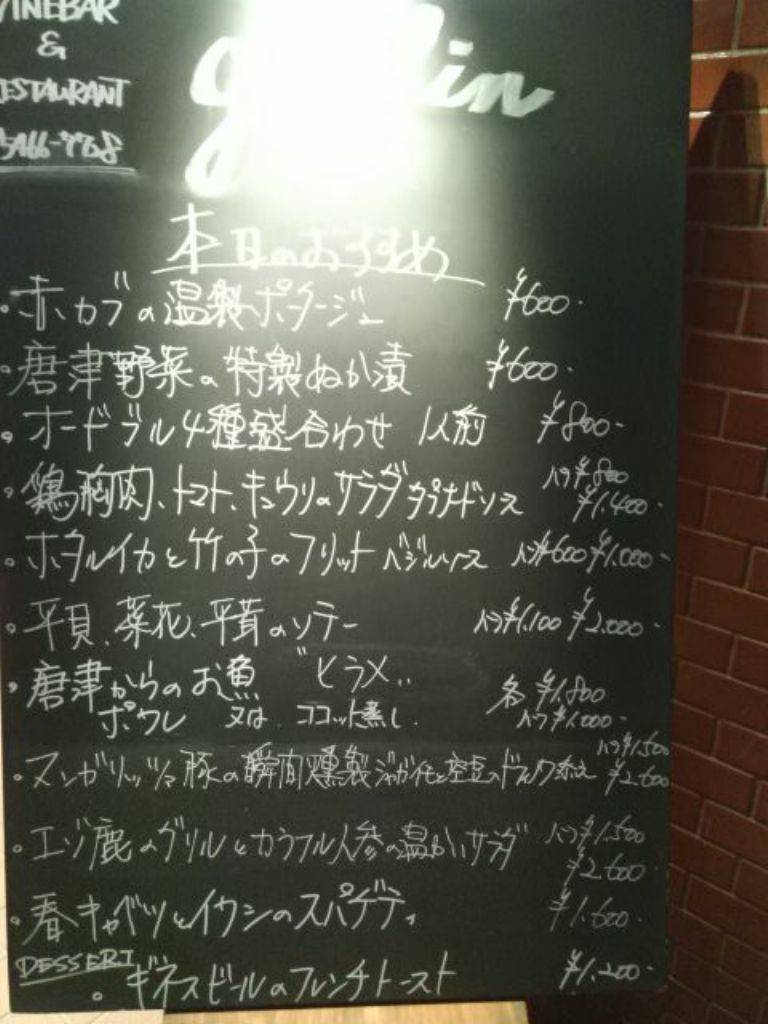 WINEBAR
&
RESTAURANT
5466-7758
本日のおすすめ
・赤カブの温製ポタージュ ¥600-
・唐津野菜の特製ぬか漬 ¥600-
・オードブル4種盛合わせ 1人前 ¥800-
・鶏胸肉、トマト、キュウリのサラダ タプナードソース ハーフ¥800
¥1,400-
・ホタルイカと竹の子のフリット バジルソース ハーフ¥600 ¥1,000-
・平貝、菜花、平茸のソテー ハーフ¥1,100 ¥2,000-
・唐津からのお魚 "ヒラメ" 各¥1,800
ポワレ 又は ココット蒸し ハーフ¥1,000-
ハーフ¥1,500
・マンガリッツァ豚の瞬間燻製 ジャガイモと空豆の添え ¥2,600
・エゾ鹿のグリルとカラフル人参の温かいサラダ ハーフ¥1,500
¥2,600
・春キャベツとイワシのスパゲティ ¥1,600-
DESSERT
・ギネスビールのフレンチトースト ¥1,200-